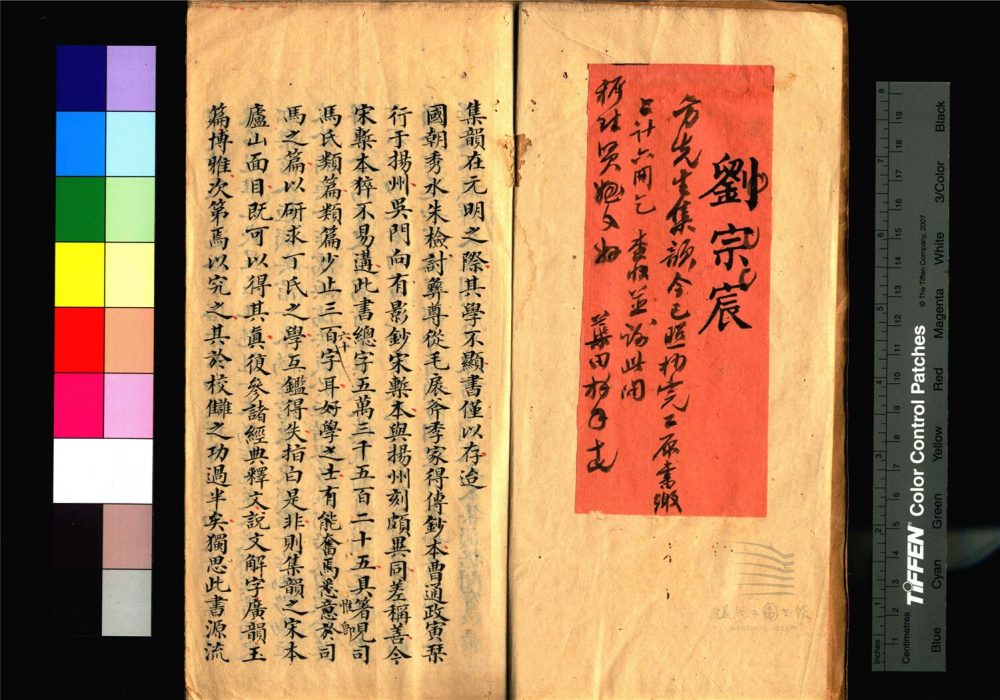 劉宗宸
方先生集韻今已照抄完工原書繳
上計六冊乞 查收並詢此問
集韻在元明之際其學不顯書僅以存迨
國朝秀水朱檢討彝尊從毛扆斧季家得傳鈔本曹通政寅栞
行于揚州吳門尚有影鈔宋槧本與揚州刻頗異同差稱善今
宋槧本猝不易遘此書總字五萬三千五百二十五具箸見司
馬氏類篇類篇少止三百六十字耳好學之士有能奮焉悉意惟島於司
馬之篇以研求丁氏之學互鑑得失掐白是非則集韻之宋本
廬山面目既可以得其眞復參諸經典釋文說文解字廣韻玉
篇博雅次第焉以究之其於校讎之功過半矣獨思此書源流
温州市圖書館
WENZHOU LIBRARY
TIFFEN Color Control Patches
© The Tiffen Company, 2007
Inches
Centimetres
Blue
Cyan
Green
Yellow
Red
Magenta
White
3/Color
Black